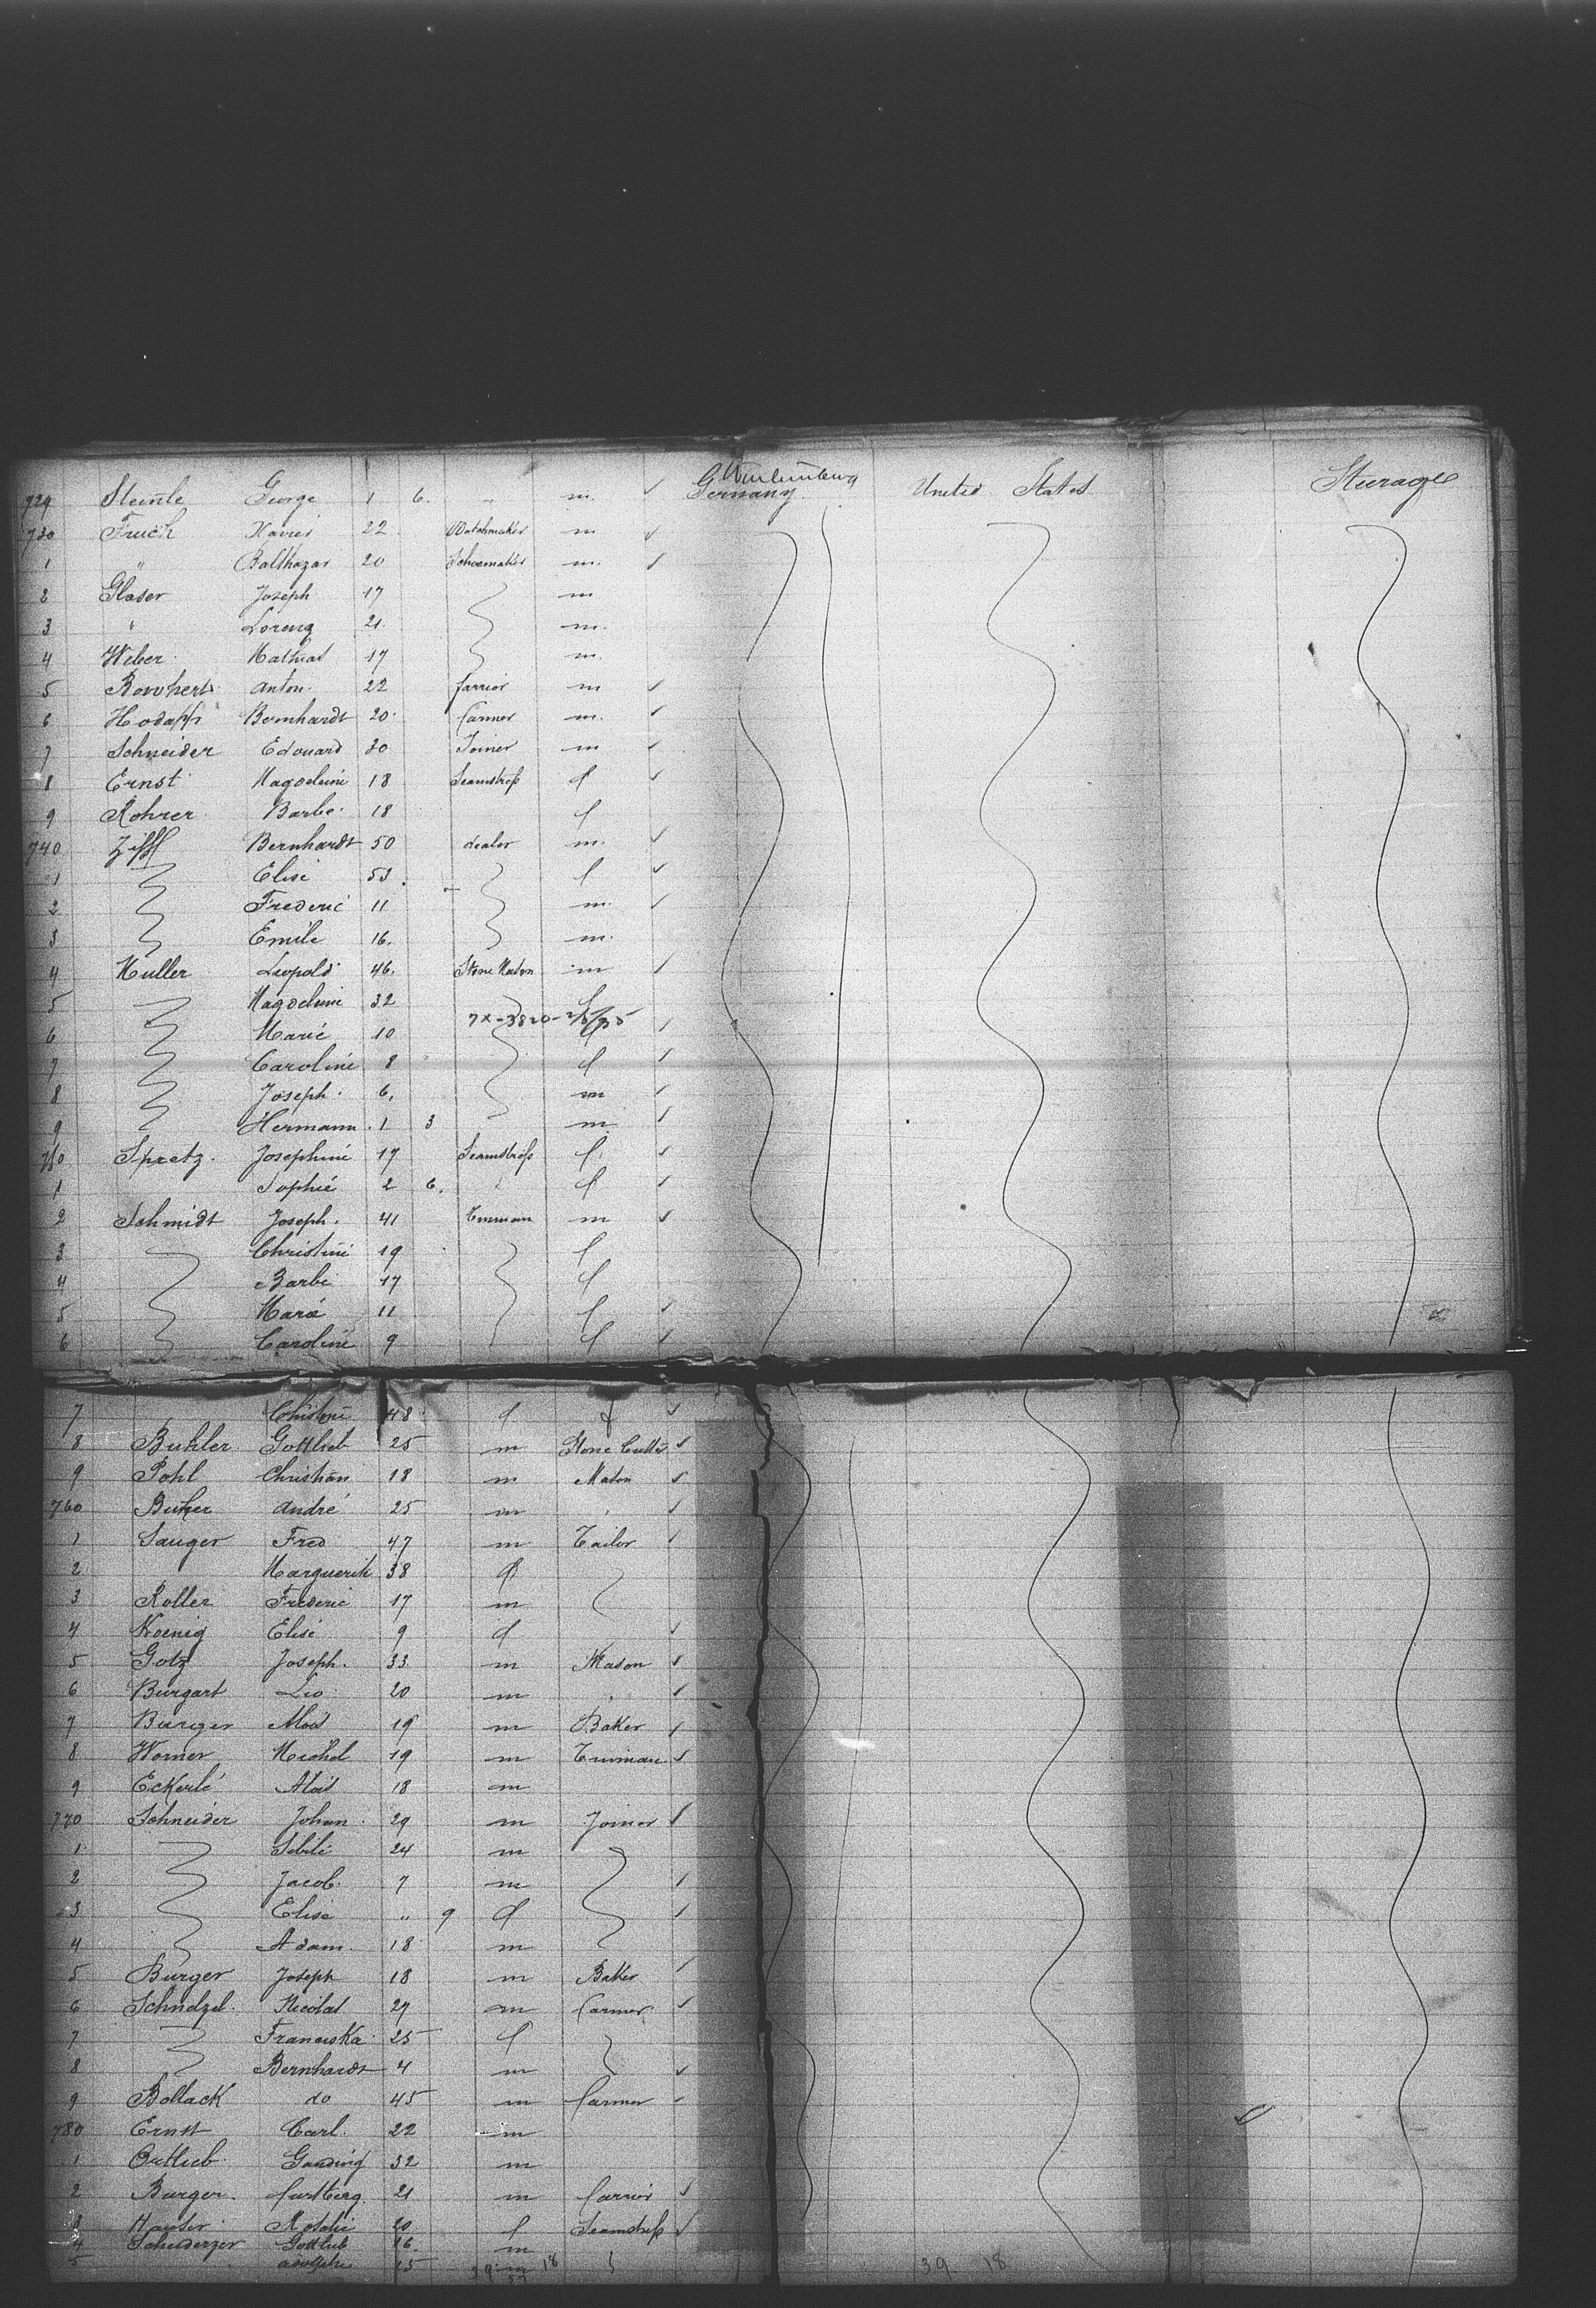 729 Steinle George 1 6. " m. Germany Wurtemberg United States Steerage
730 Fruch Xavier 22 Watchmaker m
1 " Balthazar 20 Schoemaker m.
2 Glaser Joseph 17 m
3 " Lorenz 21 m.
4 Weber Mathias 17 m.
5 Anton. 22 farrier m
6 Hodapp Bernhardt 20 farmer m.
7 Schneider Edouard 30 Joiner m
8 Ernst Magdeleine 18 Seamstress f
9 Rohrer Barbe 18 f
740 Ziffl Bernhardt 50 dealer m.
1 Elise 53 f
2 Frederic 11 m.
3 Emile 16. m.
4 Muller Leopold 46. Stone Mason m
5 Magdeleine 32 f
7x-3820-
6 Marie 10 f
7 Caroline 8 f
8 Joseph. 6. m
9 Hermann. 1 3 m
750 Spretz. Josephine 17 Seamstress f.
1 Sophie 2 6. f
2 Schmidt Joseph. 41 m
3 Christine 19 f
4 Barbe 17 f
5 Marie 11 f
6 Caroline 9 f
7 Christine 48 f
8 Buhler Gottlieb 25 m Stone Cutter
9 Pohl Christian 18 m Mason
760 André 25 m
1 Sauger Fred 47 m Tailor
2 Marguerite 38 f
3 Roller Frederic 17 m
4 Koenig Elise 9 f
5 Gotz Joseph. 33 m Mason
6 Burgart Leo 20 m
7 Burger Alois 19 m Baker
8 Worner Michel 19 m
9 Eckerlé Alois 18 m
770 Schneider Johan 29 m Joiner
1 Sebile 24 m
2 Jacob. 7 m
3 Elise " 9 f
4 Adam. 18 m
5 Burger Joseph 18 m Baker
6 Schnelzel. Nicolas 27 m farmer
7 Franciska 25 f
8 Bernhardt 4 m
9 Bollack do 45 m farmer
780 Ernst Carl. 22 m
1 Ortlieb 32 m
2 Burger. 21 m farrier
3 Hauser Rosalie 20 f Seamstress
4 Gottlieb 16. m
5 Adolphe 15 m
39 18